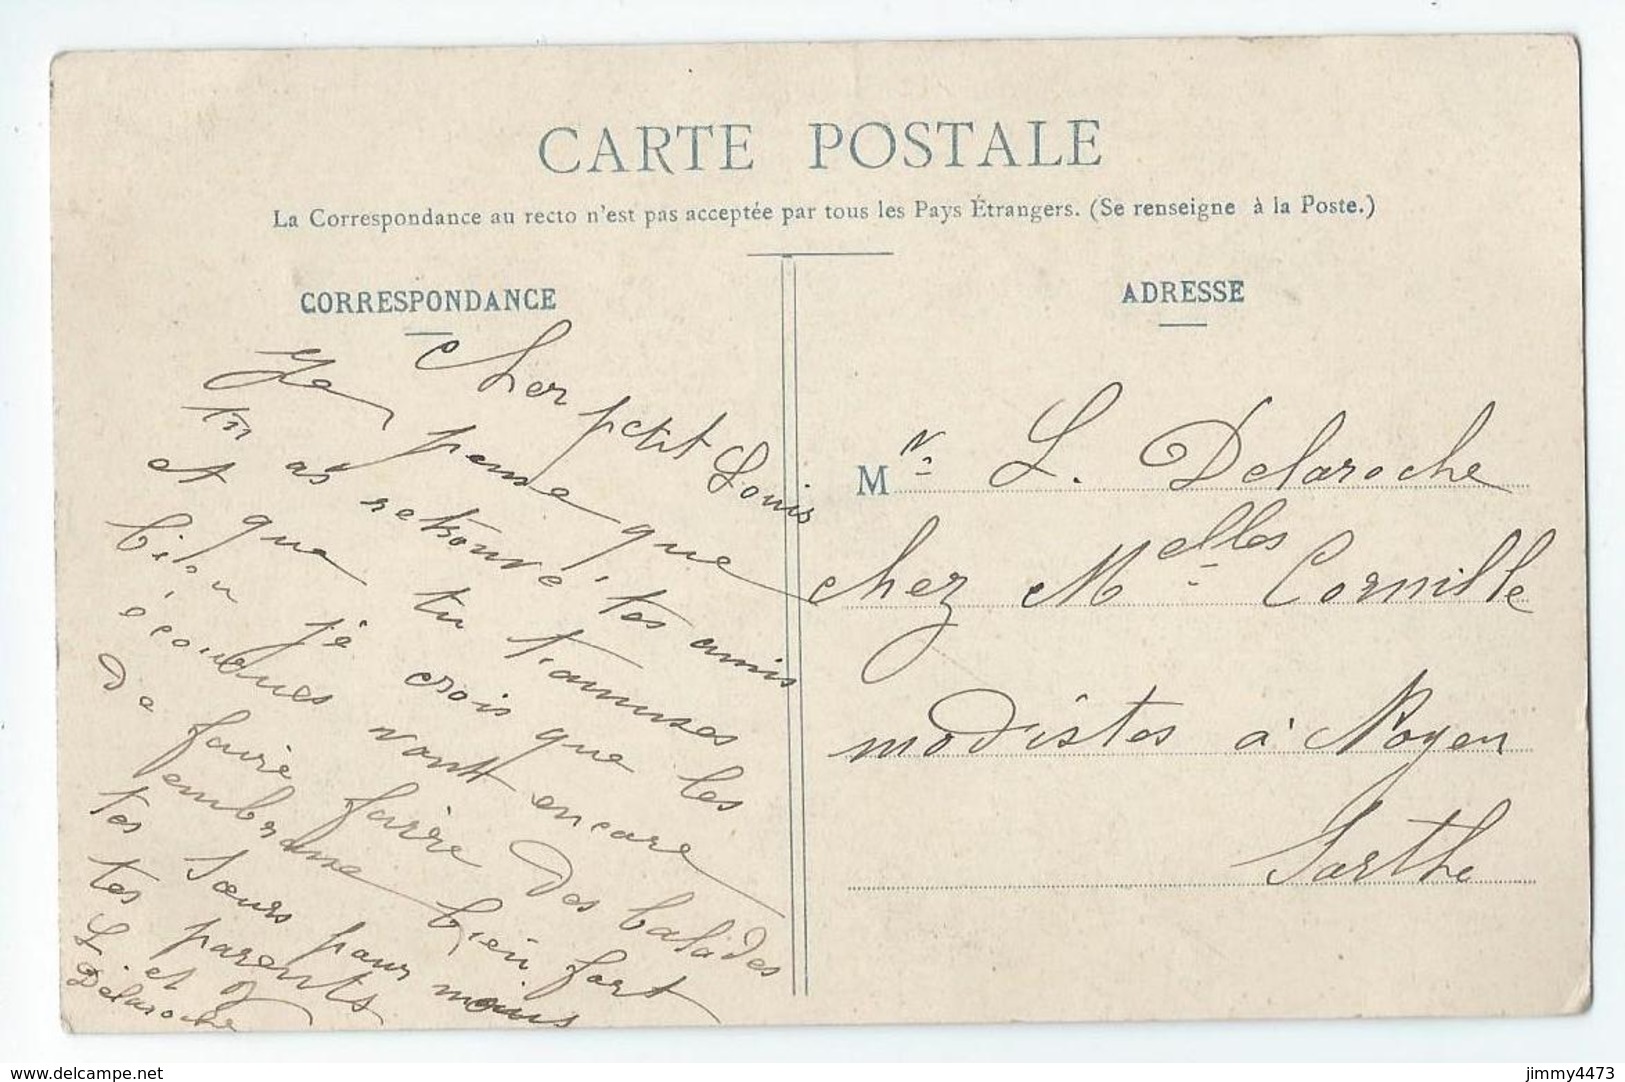 CARTE POSTALE
La Correspondance au recto n'est pas acceptée par tous les Pays Étrangers. (Se renseigne à la Poste.)
CORRESPONDANCE
Cher petit Louis
Je pense que
tu as retrouvé tes amis
et que tu t'amuses
bien je crois que les
vont encore
de faire faire des balades
embrasse bien fort
tes sœurs pour nous
tes parents
L et J
Delaroche
ADRESSE
Mr L. Delaroche
chez Melles Cornille
modistes à Noyen
Sarthe
delcampe.net
jimmy4473